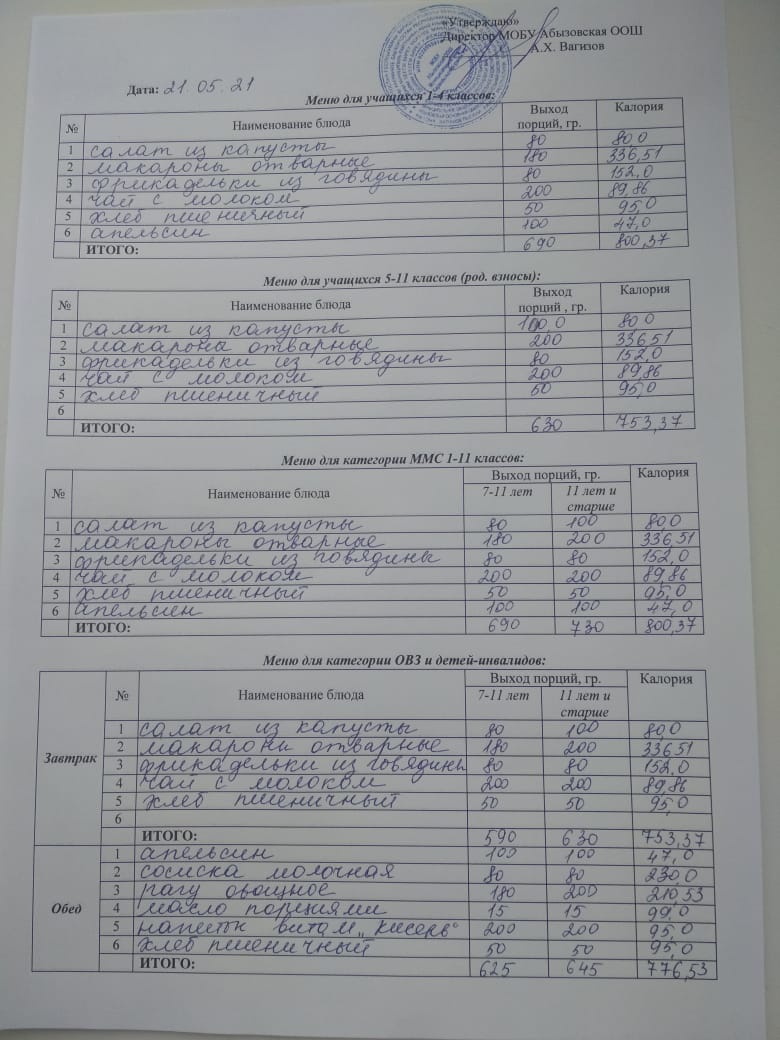 «Утверждаю»
Директор МОБУ Абызовская ООШ
А.Х. Вагизов
Дата: 21.05.21
Меню для учащихся 1-4 классов:
№ Наименование блюда Выход порций, гр. Калория
1 салат из капусты 80 80,0
2 макароны отварные 180 336,51
3 фрикадельки из говядины 80 152,0
4 чай с молоком 200 89,86
5 хлеб пшеничный 50 95,0
6 апельсин 100 47,0
ИТОГО: 690 800,37
Меню для учащихся 5-11 классов (род. взносы):
№ Наименование блюда Выход порций , гр. Калория
1 салат из капусты 100,0 80,0
2 макароны отварные 200 336,51
3 фрикадельки из говядины 80 152,0
4 чай с молоком 200 89,86
5 хлеб пшеничный 50 95,0
6
ИТОГО: 630 753,37
Меню для категории ММС 1-11 классов:
№ Наименование блюда Выход порций, гр. Калория
7-11 лет 11 лет и старше
1 салат из капусты 80 100 80,0
2 макароны отварные 180 200 336,51
3 фрикадельки из говядины 80 80 152,0
4 чай с молоком 200 200 89,86
5 хлеб пшеничный 50 50 95,0
6 апельсин 100 100 47,0
ИТОГО: 690 730 800,37
Меню для категории ОВЗ и детей-инвалидов:
№ Наименование блюда Выход порций, гр. Калория
7-11 лет 11 лет и старше
Завтрак
1 салат из капусты 80 100 80,0
2 макароны отварные 180 200 336,51
3 фрикадельки из говядины 80 80 152,0
4 чай с молоком 200 200 89,86
5 хлеб пшеничный 50 50 95,0
6
ИТОГО: 590 630 753,37
Обед
1 апельсин 100 100 47,0
2 сосиска молочная 80 80 230,0
3 рагу овощное 180 200 210,53
4 масло порциями 15 15 99,0
5 напиток витам „Кисель“ 200 200 95,0
6 хлеб пшеничный 50 50 95,0
ИТОГО: 625 645 776,53